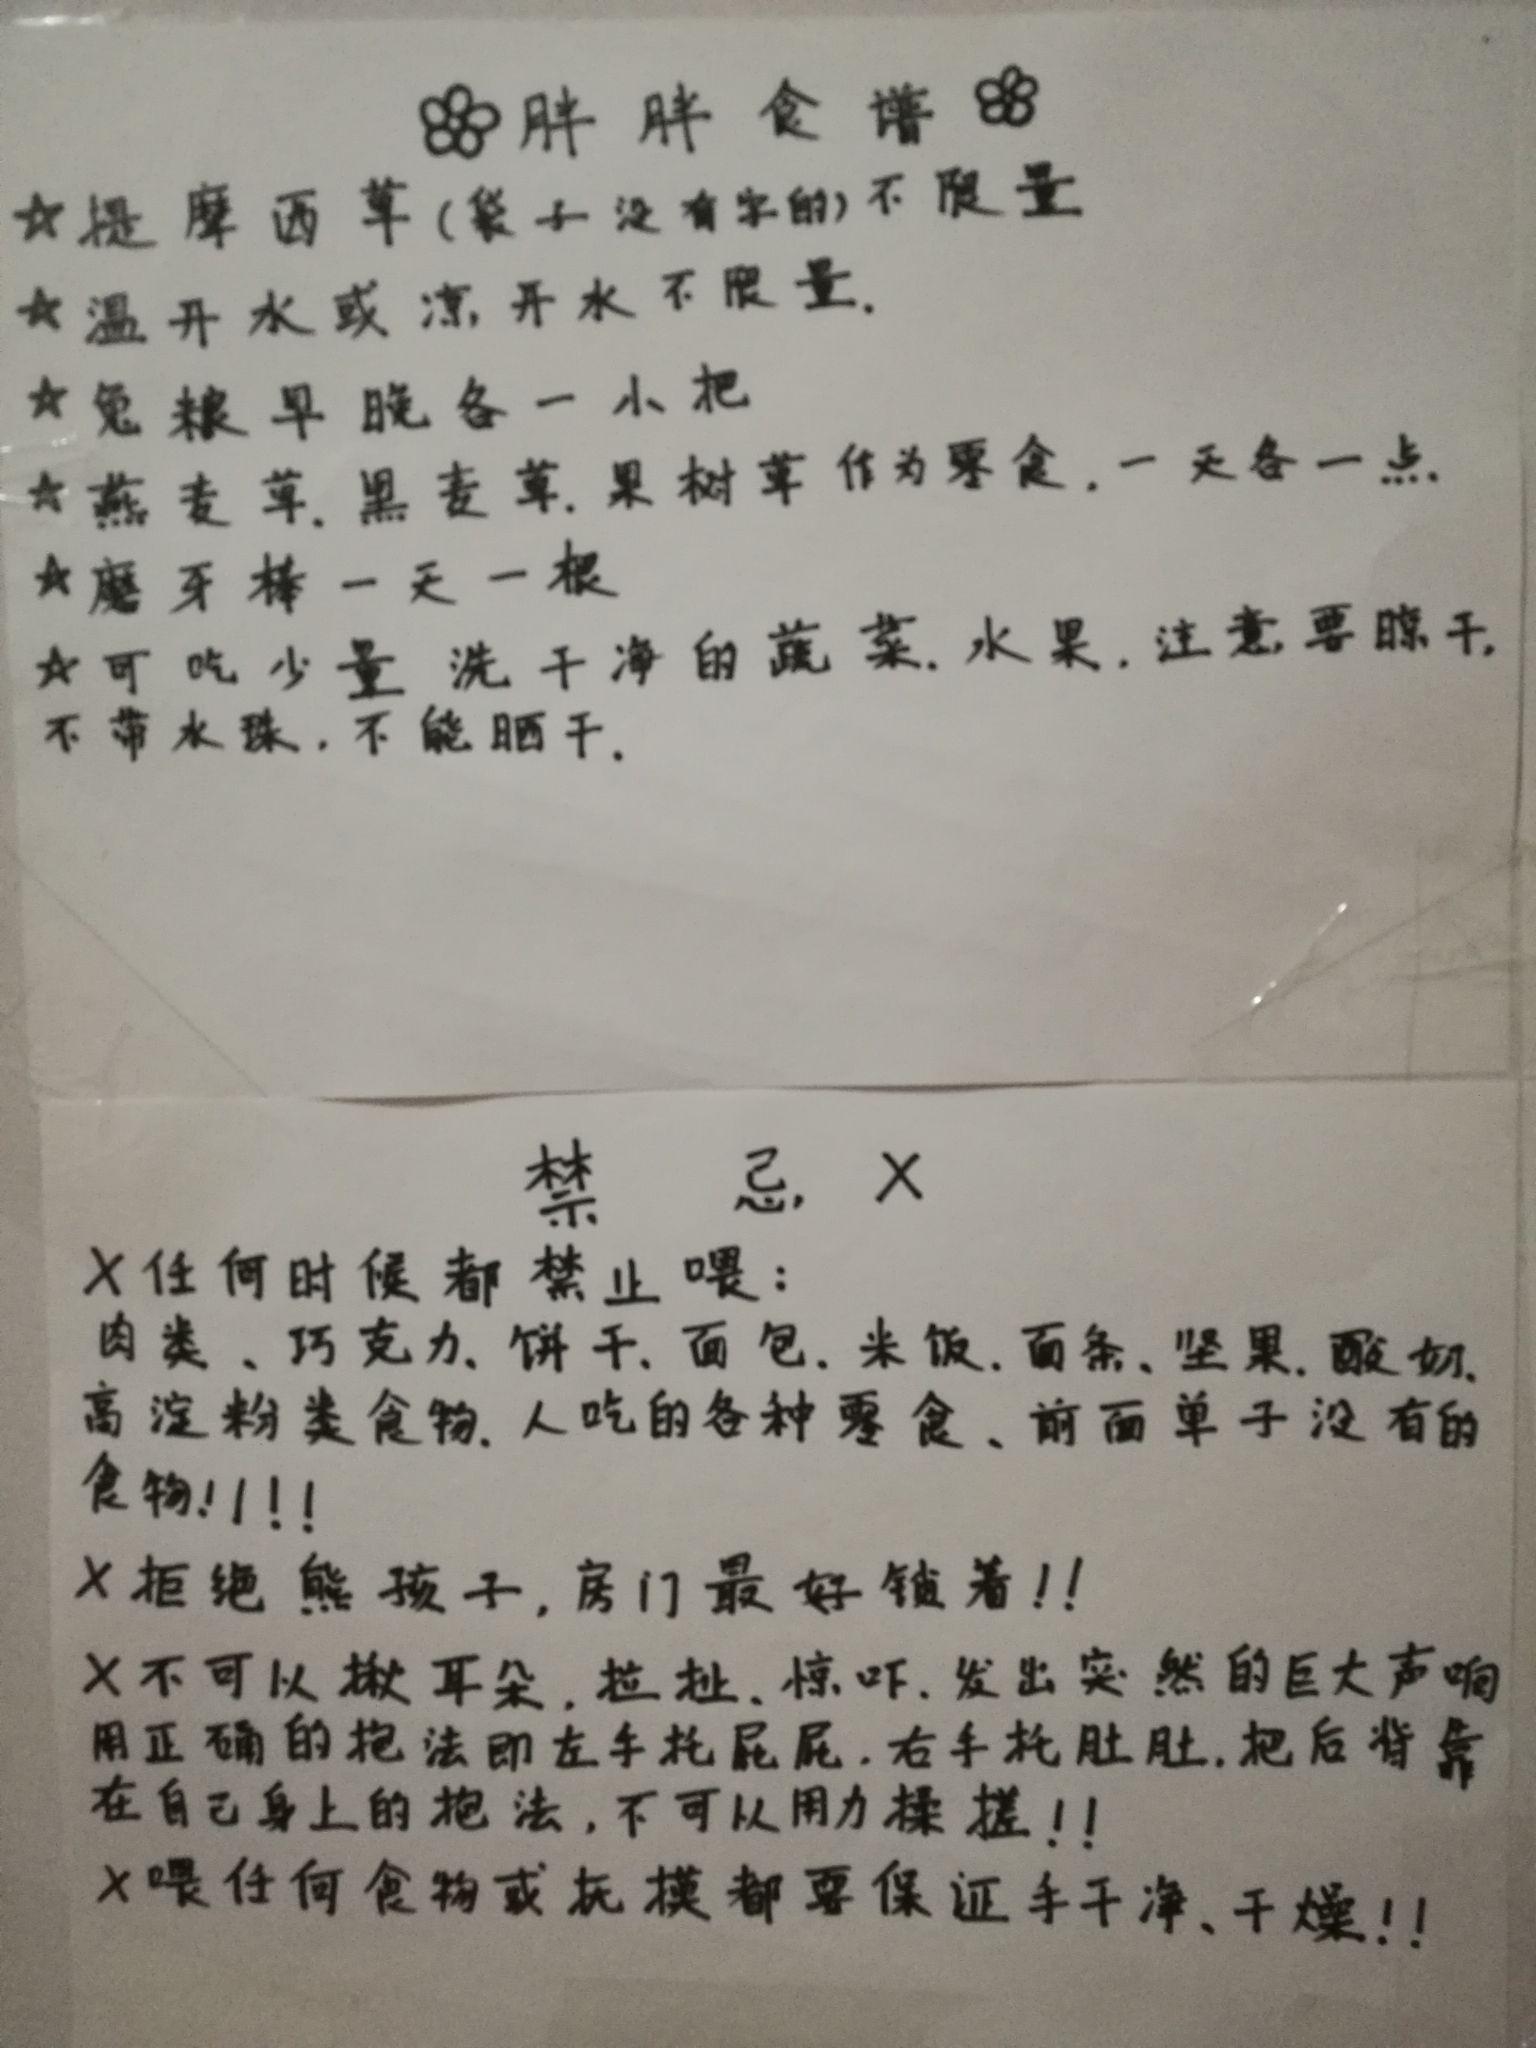 胖胖食谱
☆提摩西草(袋子没有字的)不限量
☆温开水或凉开水不限量.
☆兔粮早晚各一小把
☆燕麦草.黑麦草.果树草作为零食.一天各一点.
☆磨牙棒一天一根
☆可吃少量洗干净的蔬菜.水果.注意要晾干.
不带水珠.不能晒干.
禁忌X
X任何时候都禁止喂:
肉类、巧克力、饼干、面包.米饭.面条、坚果.酸奶.
高淀粉类食物.人吃的各种零食、前面单子没有的
食物!!!!
X拒绝熊孩子,房门最好锁着!!
X不可以揪耳朵.拉扯、惊吓.发出突然的巨大声响
用正确的抱法即左手托屁屁.右手托肚肚.把后背靠
在自己身上的抱法,不可以用力揉搓!!
X喂任何食物或抚摸都要保证手干净、干燥!!